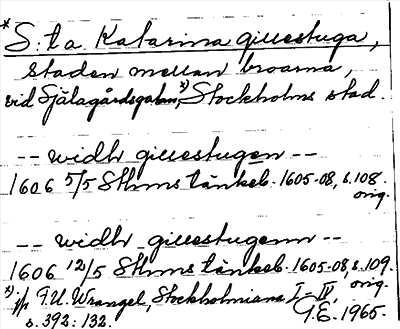 * S:ta Katarina gillestuga,
staden mellan broarna,
vid Själagårdsgatan, x) Stockholms stad.
-- widh gillestugen --
1606 5/5 Sthms tänkeb. 1605-08, s.108
orig.
-- widh gillestugenn --
1606 12/5 Sthms tänkeb. 1605-08, s.109.
orig.
x) jfr F.U. Wrangel, Stockholmiana I-IV,
s. 392: 132. G.E. 1965.